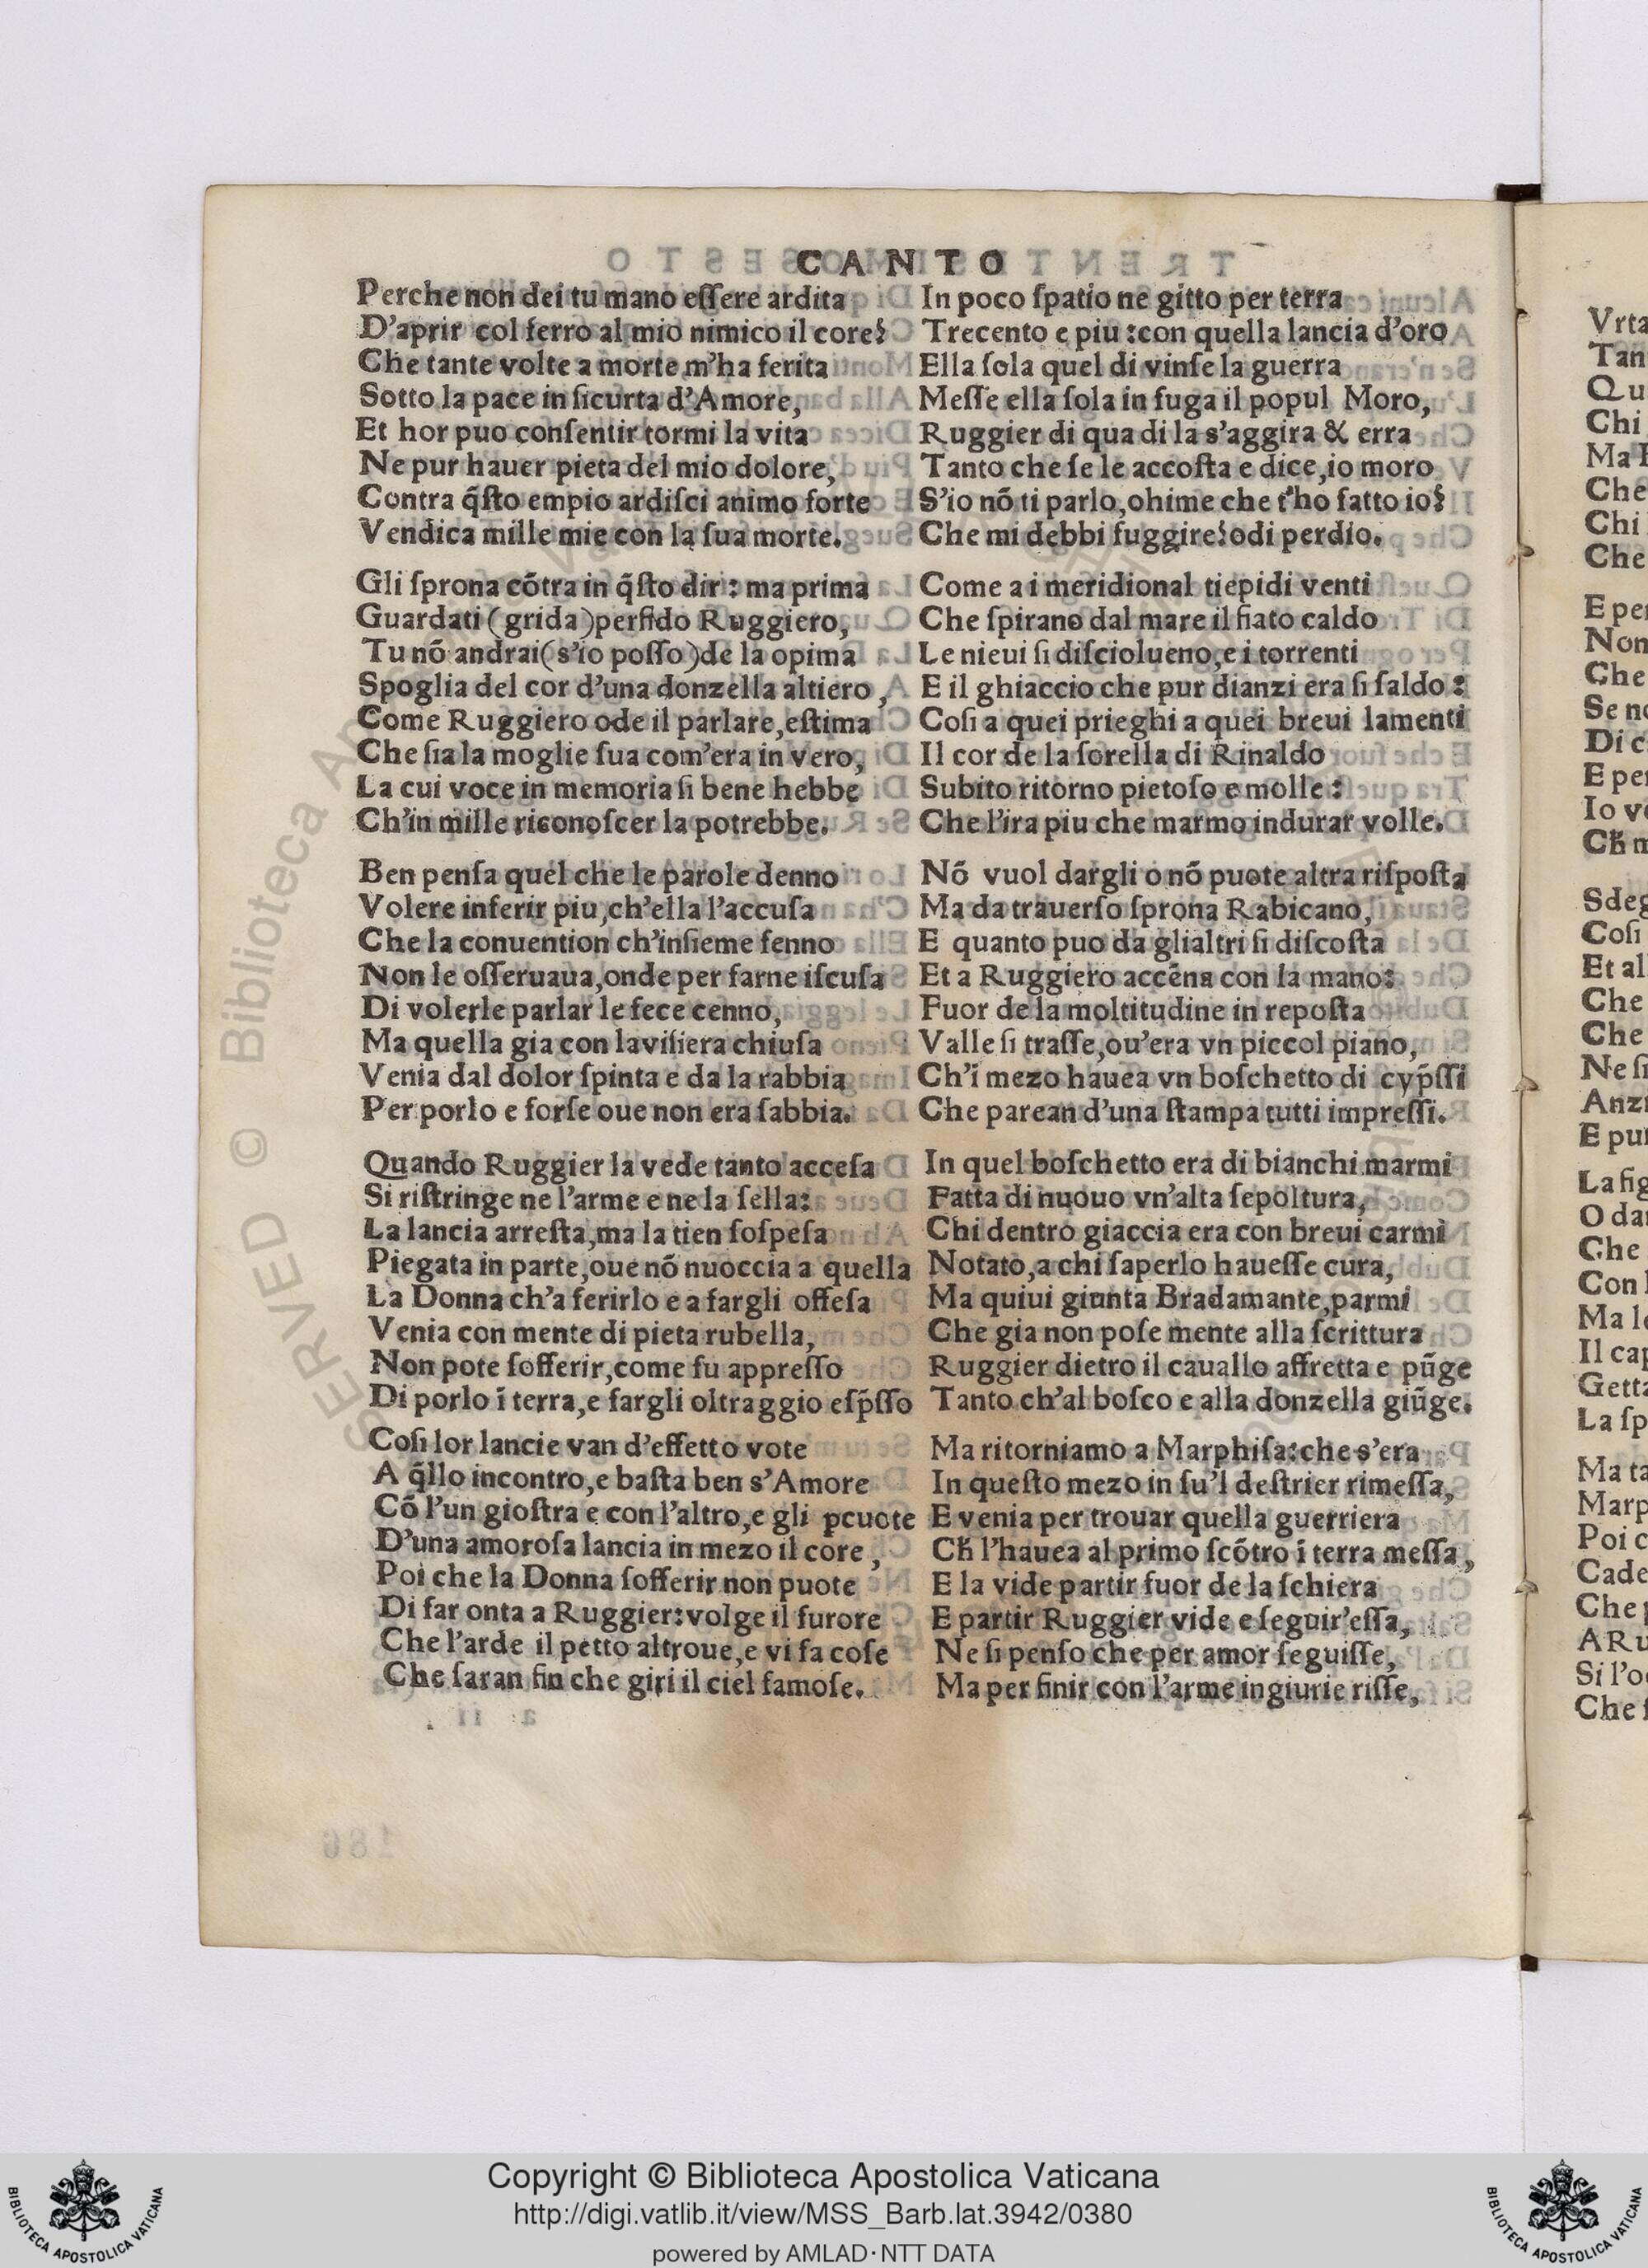 CANTO
Perche non dei tu mano eſſere ardita
D'aprir col ferro al mio nimico il core?
Che tante volte a morte m'ha ferita
Sotto la pace in ſicurta d'Amore,
Et hor puo conſentir tormi la vita
Ne pur hauer pieta del mio dolore,
Contra q̃ſto empio ardiſci animo forte
Vendica mille mie con la ſua morte.
Gli ſprona cõtra in q̃ſto dir : ma prima
Guardati (grida)perfido Ruggiero,
Tu nõ andrai(s'io poſſo)de la opima
Spoglia del cor d'una donzella altiero,
Come Ruggiero ode il parlare,eſtima
Che ſia la moglie ſua com'era in vero,
La cui voce in memoria ſi bene hebbe
Ch'in mille riconoſcer la potrebbe.
Ben penſa quel che le parole denno
Volere inferir piu,ch'ella l'accuſa
Che la conuention ch'inſieme fenno
Non le oſſeruaua,onde per farne iſcuſa
Di volerle parlar le fece cenno,
Ma quella gia con la viſiera chiuſa
Venia dal dolor ſpinta e da la rabbia
Per porlo e forſe oue non era ſabbia.
Quando Ruggier la vede tanto acceſa
Si riſtringe ne l'arme e ne la ſella:
La lancia arreſta,ma la tien ſoſpeſa
Piegata in parte,oue nõ nuoccia a quella
La Donna ch'a ferirlo e a fargli offeſa
Venia con mente di pieta rubella,
Non pote ſofferir,come fu appreſſo
Di porlo ĩ terra,e fargli oltraggio eſp̃ſſo
Coſi lor lancie van d'effetto vote
A q̃llo incontro,e baſta ben s'Amore
Cõ l'un gioſtra e con l'altro,e gli pcuote
D'una amoroſa lancia in mezo il core,
Poi che la Donna ſofferir non puote
Di far onta a Ruggier:volge il furore
Che l'arde il petto altroue,e vi fa coſe
Che ſaran fin che giri il ciel famoſe.
In poco ſpatio ne gitto per terra
Trecento e piu :con quella lancia d'oro
Ella ſola quel di vinſe la guerra
Meſſe ella ſola in fuga il popul Moro,
Ruggier di qua di la s'aggira & erra
Tanto che ſe le accoſta e dice,io moro
S'io nõ ti parlo,ohime che t'ho fatto io?
Che mi debbi fuggire?odi perdio.
Come a i meridional tiepidi venti
Che ſpirano dal mare il fiato caldo
Le nieui ſi diſciolueno,e i torrenti
E il ghiaccio che pur dianzi era ſi ſaldo :
Coſi a quei prieghi a quei breui lamenti
Il cor de la ſorella di Rinaldo
Subito ritorno pietoſo e molle :
Che l'ira piu che marmo indurar volle.
Nõ vuol dargli o nõ puote altra riſpoſta
Ma da trauerſo ſprona Rabicano,
E quanto puo da glialtri ſi diſcoſta
Et a Ruggiero accẽna con la mano:
Fuor de la moltitudine in repoſta
Valle ſi traſſe,ou'era vn piccol piano,
Ch'i mezo hauea vn boſchetto di cyp̃ſſi
Che parean d'una ſtampa tutti impreſſi.
In quel boſchetto era di bianchi marmi
Fatta di nuouo vn'alta ſepoltura,
Chi dentro giaccia era con breui carmi
Notato,a chi ſaperlo haueſſe cura,
Ma quiui giunta Bradamante,parmi
Che gia non poſe mente alla ſcrittura
Ruggier dietro il cauallo affretta e pũge
Tanto ch'al boſco e alla donzella giũge.
Ma ritorniamo a Marphiſa:che s'era
In queſto mezo in ſu'l deſtrier rimeſſa,
E venia per trouar quella guerriera
Cħ l'hauea al primo ſcõtro ĩ terra meſſa,
E la vide partir fuor de la ſchiera
E partir Ruggier vide e ſeguir'eſſa,
Ne ſi penſo che per amor ſeguiſſe,
Ma per finir con l'arme ingiurie riſſe,
Vrta
Tan
Qu
Chi
Ma
Che
Chi
Che
E per
Non
Che
Se no
Di c
E per
Io vo
Cħ m
Sdeg
Coſi
Et al
Che
Che
Ne ſi
Anzi
E pur
La fig
O dar
Che
Con
Ma le
Il cap
Getta
La ſp
Ma ta
Marp
Poi c
Cade
Che
A Ru
Si l'o
Che
© Biblioteca
SERVED
Copyright © Biblioteca Apostolica Vaticana
http://digi.vatlib.it/view/MSS_Barb.lat.3942/0380
powered by AMLAD·NTT DATA
BIBLIOTECA APOSTOLICA VATICANA
BIBLIOTECA APOSTOLICA VATICANA